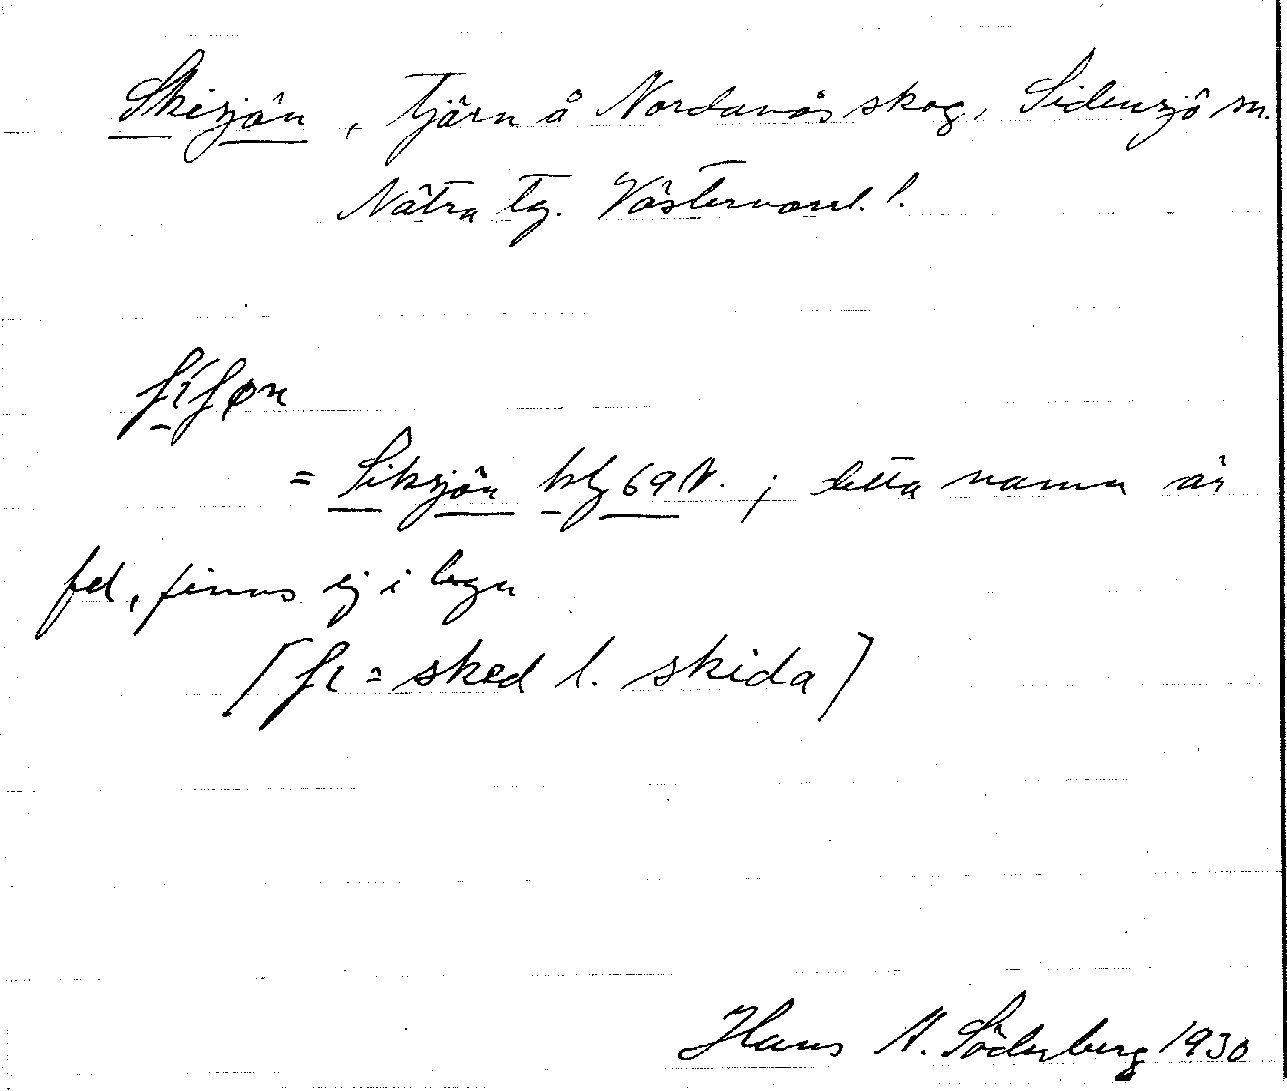 Skisjön, Tjärn å Nordanås skog, Sidensjö sn.
Nätra tg. Västernorrl. l.
ʃiʃøn
= Siksjön kbl 69 N. ; detta namn är
fel, finns ej i byn
(ʃi = sked l. skida)
Hans N. Söderberg 1930